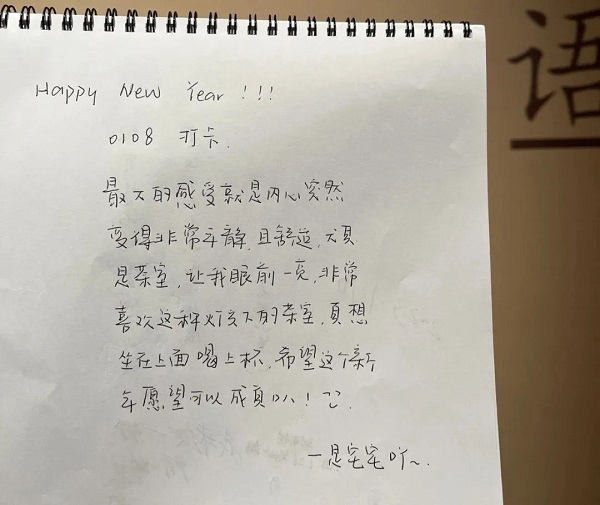 Happy New Year!!!
0108 打卡.
最大的感受就是内心突然
变得非常平静,且舒适,尤其
是茶室,让我眼前一亮,非常
喜欢这种灯光下的茶室,真想
坐在上面喝上杯,希望这个新
年愿望可以成真叭!
一是宅宅吖~.
语